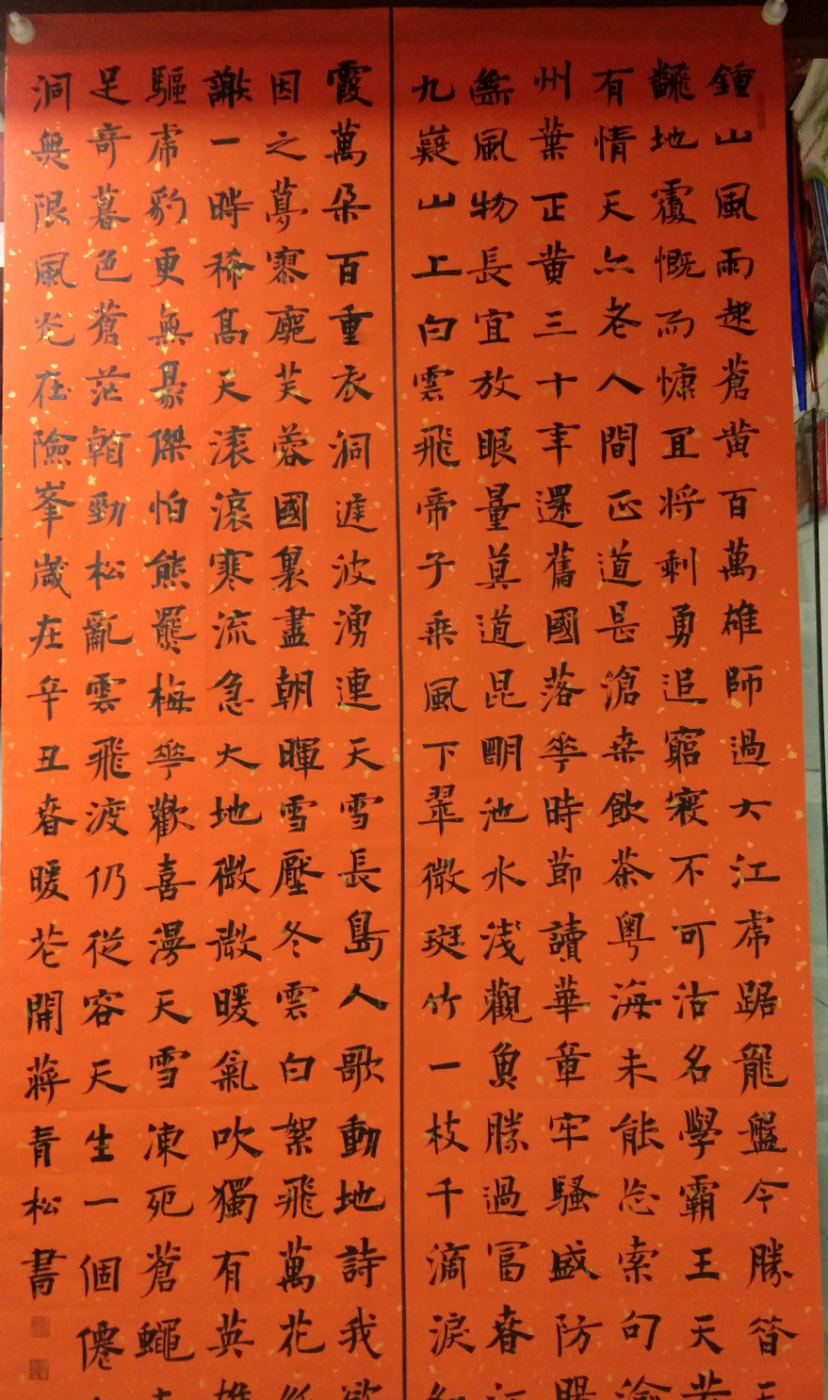 鍾山風雨起蒼黄百萬雄師過大江虎踞龍盤今勝昔
飜地覆慨而慷宜将剩勇追窮寇不可沽名學霸王天若
有情天亦老人間正道是滄桒飲茶粤海未能忘索句渝
州葉正黄三十年還舊國落華時節讀華章牢騷盛防腸
斷風物長宜放眼量莫道昆明池水淺觀魚勝過富春江
九嶷山上白雲飛帝子乘風下翠微斑竹一枝千滴淚紅
霞萬朵百重衣洞庭波湧連天雪長島人歌動地詩我欲
因之夢寥廓芙蓉國裏盡朝暉雪壓冬雲白絮飛萬花紛
謝一時稀高天滚滚寒流急大地微微暖氣吹獨有英雄
驅虎豹更無豪傑怕熊羆梅華歡喜漫天雪凍死蒼蠅未
足奇暮色蒼茫看勁松亂雲飛渡仍從容天生一個僊
洞無限風光在險峯歲在辛丑春暖花開蔣青松書